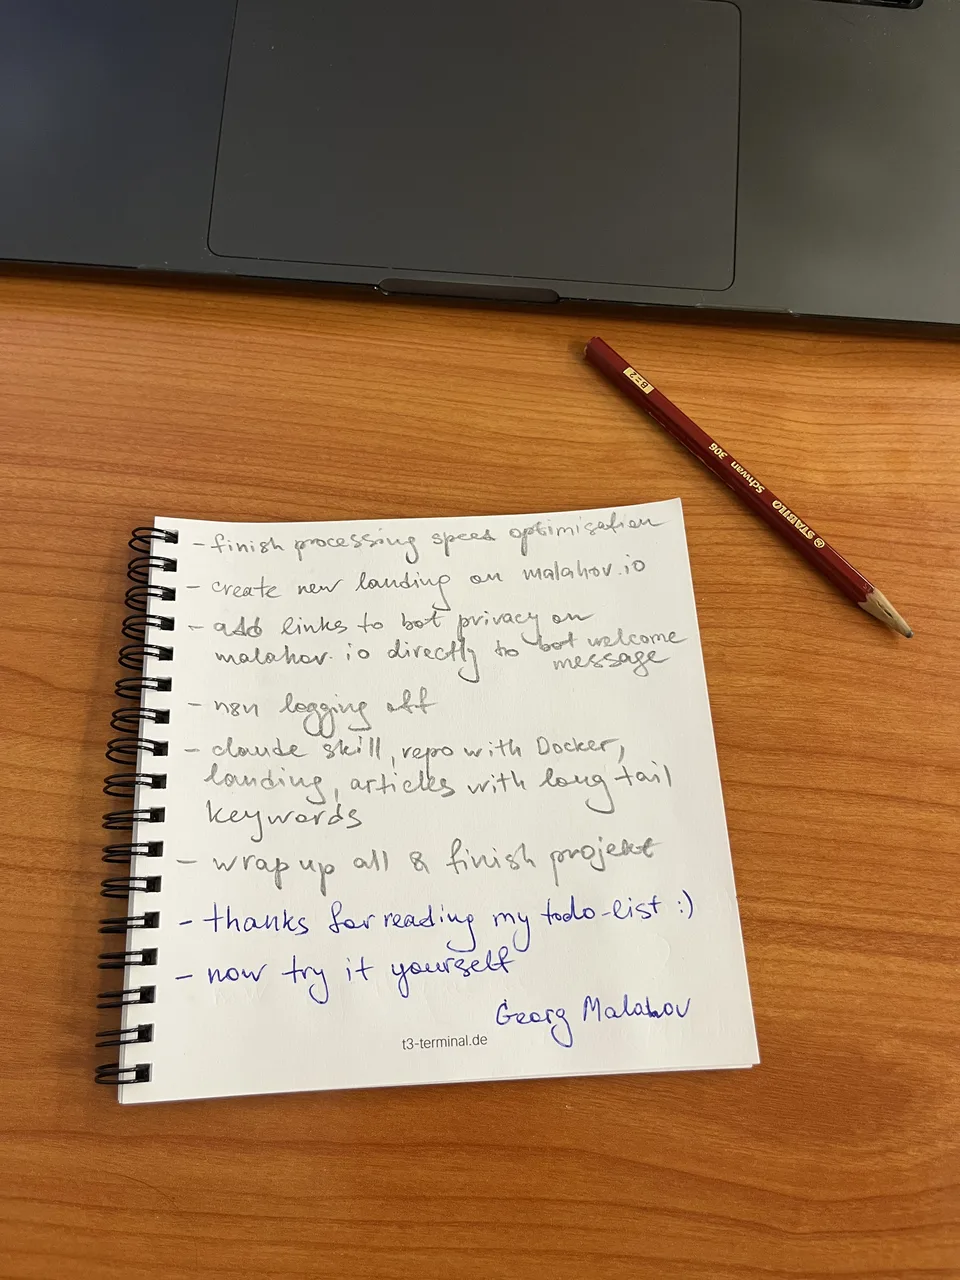 B=2
Schwan 306
© STABILO
- finish processing speed optimisation
- create new landing on malahov.io
- add links to bot privacy on
malahov.io directly to bot welcome
message
- n8n logging off
- claude skill, repo with Docker,
landing, articles with long tail
keywords
- wrap up all & finish projekt
- thanks for reading my todo-list :)
- now try it yourself
Georg Malahov
t3-terminal.de